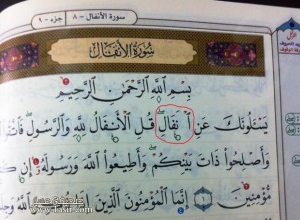 سورة الأنفال - ٨
جزء - ٩
سُورَةُ الأَنْفَال
بِسْمِ ٱللَّهِ ٱلرَّحْمَٰنِ ٱلرَّحِيمِ
يَسْـَٔلُونَكَ عَنِ ٱ نفَالِ قُلِ ٱلْأَنفَالُ لِلَّهِ وَٱلرَّسُولِ
وَأَصْلِحُوا۟ ذَاتَ بَيْنِكُمْ وَأَطِيعُوا۟ ٱللَّهَ وَرَسُولَهُۥٓ إِن
مُّؤْمِنِينَ ١ إِنَّمَا ٱلْمُؤْمِنُونَ ٱلَّذِينَ